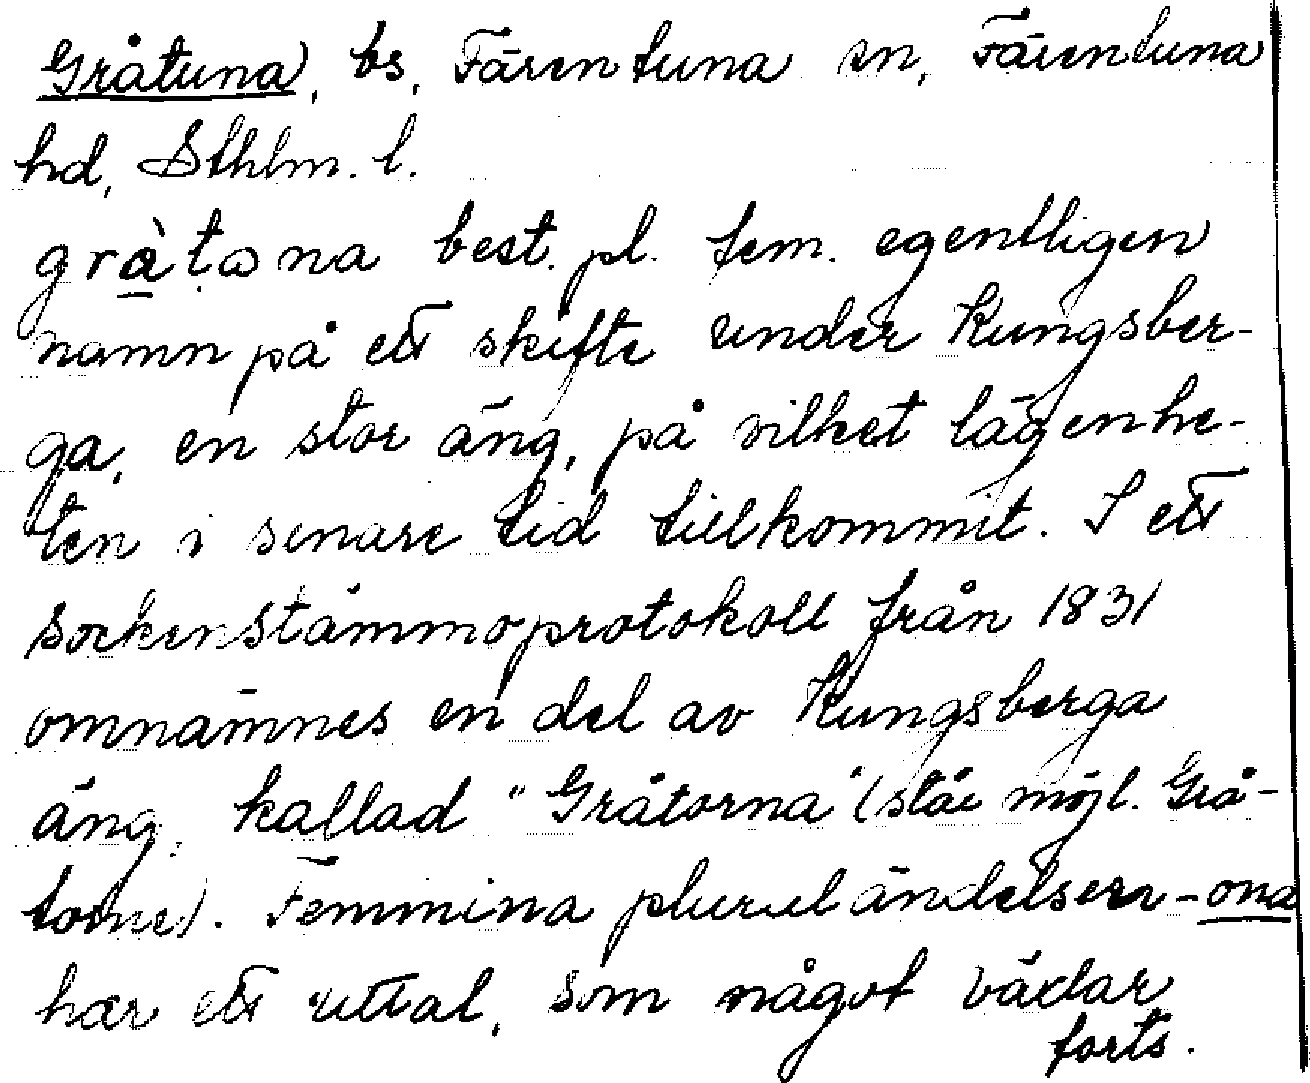 Gråtuna, bs, Färentuna sn, Färentuna
hd, Sthlm. l.
gràtona best. pl. fem. egentligen
namn på ett skifte under Kungsber-
ga, en stor äng, på vilket lägenhe-
ten i senare tid tillkommit. I ett
sockenstämmoprotokoll från 1831
omnämnes en del av Kungsberga
äng, kallad "Gråtorna" (står möjl. Grå-
torne). Feminina pluraländelsen -ona
har ett uttal, som något växlar
forts.